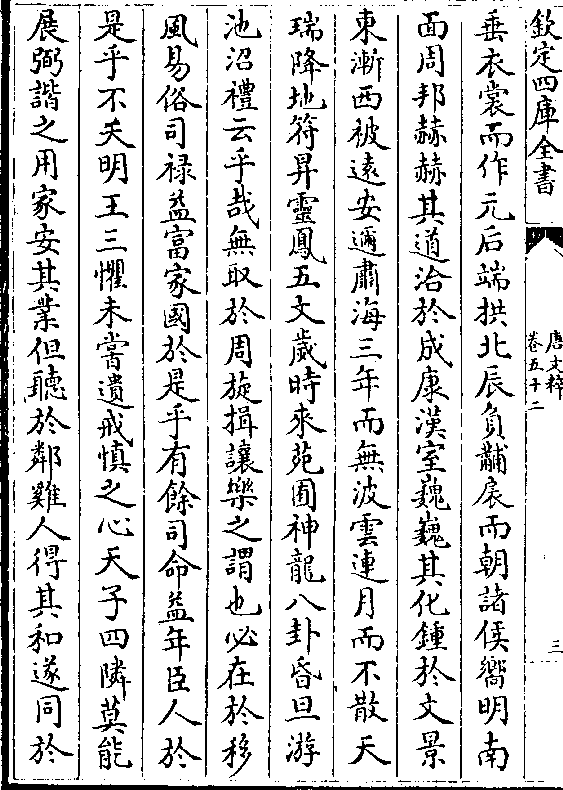 欽定四庫全書
唐文粹
卷五十二
三
垂衣裳而作元后端拱北辰負黼扆而朝諸侯嚮明南
面周邦赫赫其道洽於成康漢室巍巍其化鍾於文景
東漸西被遠安邇肅海三年而無波雲連月而不散天
瑞降地符昇靈鳳五文歲時來苑囿神龍八卦昏旦游
池沼禮云乎哉無取於周旋揖讓樂之謂也必在於移
風易俗司禄益富家國於是乎有餘司命益年臣人於
是乎不夭明王三懼未嘗遺戒慎之心天子四隣莫能
展弼諧之用家安其業但聽於鄰雞人得其和遂同於